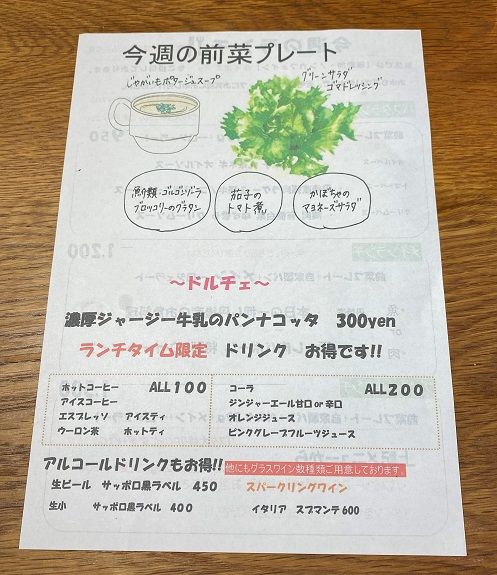 今週の前菜プレート
じゃがいもポタージュスープ
グリーンサラダ
ゴマドレッシング
魚介類・ゴルゴンゾーラ
ブロッコリーのグラタン
茄子の
トマト煮
かぼちゃの
マヨネーズサラダ
～ドルチェ～
濃厚ジャージー牛乳のパンナコッタ 300yen
ランチタイム限定 ドリンク お得です!!
ホットコーヒー ALL100
アイスコーヒー
エスプレッソ アイスティ
ウーロン茶 ホットティ
コーラ ALL200
ジンジャーエール甘口or辛口
オレンジジュース
ピンクグレープフルーツジュース
アルコールドリンクもお得!! 他にもグラスワイン数種類ご用意しております。
生ビール サッポロ黒ラベル 450 スパークリングワイン
生小 サッポロ黒ラベル 400 イタリア スプマンテ600